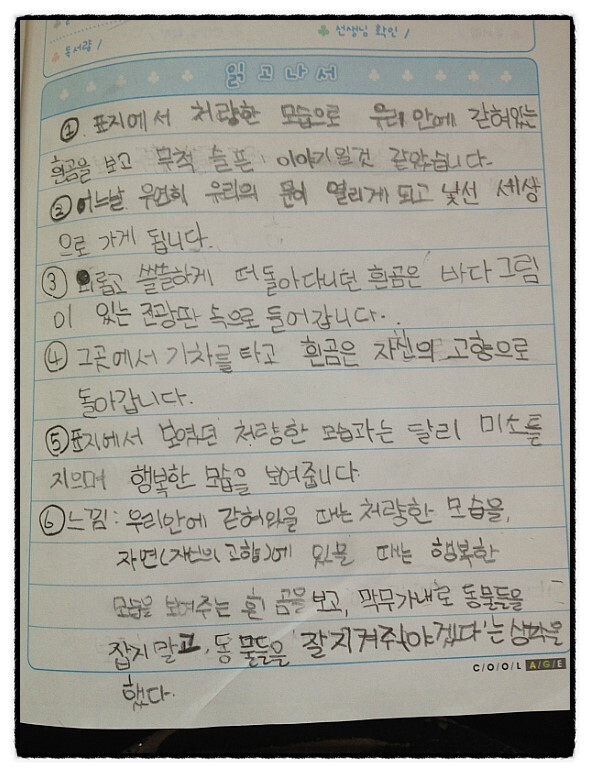 독서량 /
선생님 확인 /
읽고나서
① 표지에서 처량한 모습으로 우리 안에 갇혀있는
흰곰을 보고 무척 슬픈 이야기일것 같았습니다.
② 어느날 우연히 우리의 문이 열리게 되고 낯선 세상
으로 가게 됩니다.
③ 외롭고 쓸쓸하게 떠돌아다니던 흰곰은 바다그림
이 있는 전광판 속으로 들어갑니다.
④ 그곳에서 기차를 타고 흰곰은 자신의 고향으로
돌아갑니다.
⑤ 표지에서 보였던 처량한 모습과는 달리 미소를
지으며 행복한 모습을 보여줍니다.
⑥ 느낌: 우리안에 갇혀있을 때는 처량한 모습을,
자연(자신의 고향)에 있을 때는 행복한
모습을 보여주는 흰 곰을 보고, 막무가내로 동물들을
잡지 말고, 동물들을 '잘 지켜줘야겠다'는 생각을
했다.
COOL AGE